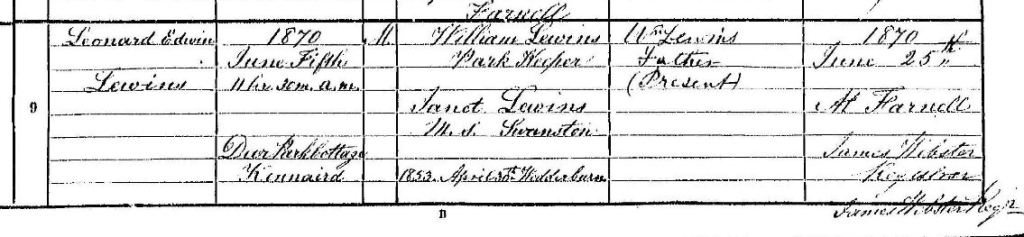 Farnell
9
Leonard Edwin
Lewins
1870
June Fifth
11 hr. 30 m. a.m.
Deer Park Cottage
Kinnaird
M.
William Lewins
Park Keeper
Janet Lewins
M.S. Swanston
1853. April 30th Wedderburn
Wm Lewins
Father
(Present)
1870
June 25th
At Farnell
James Webster
Registrar
B
James Webster Regr